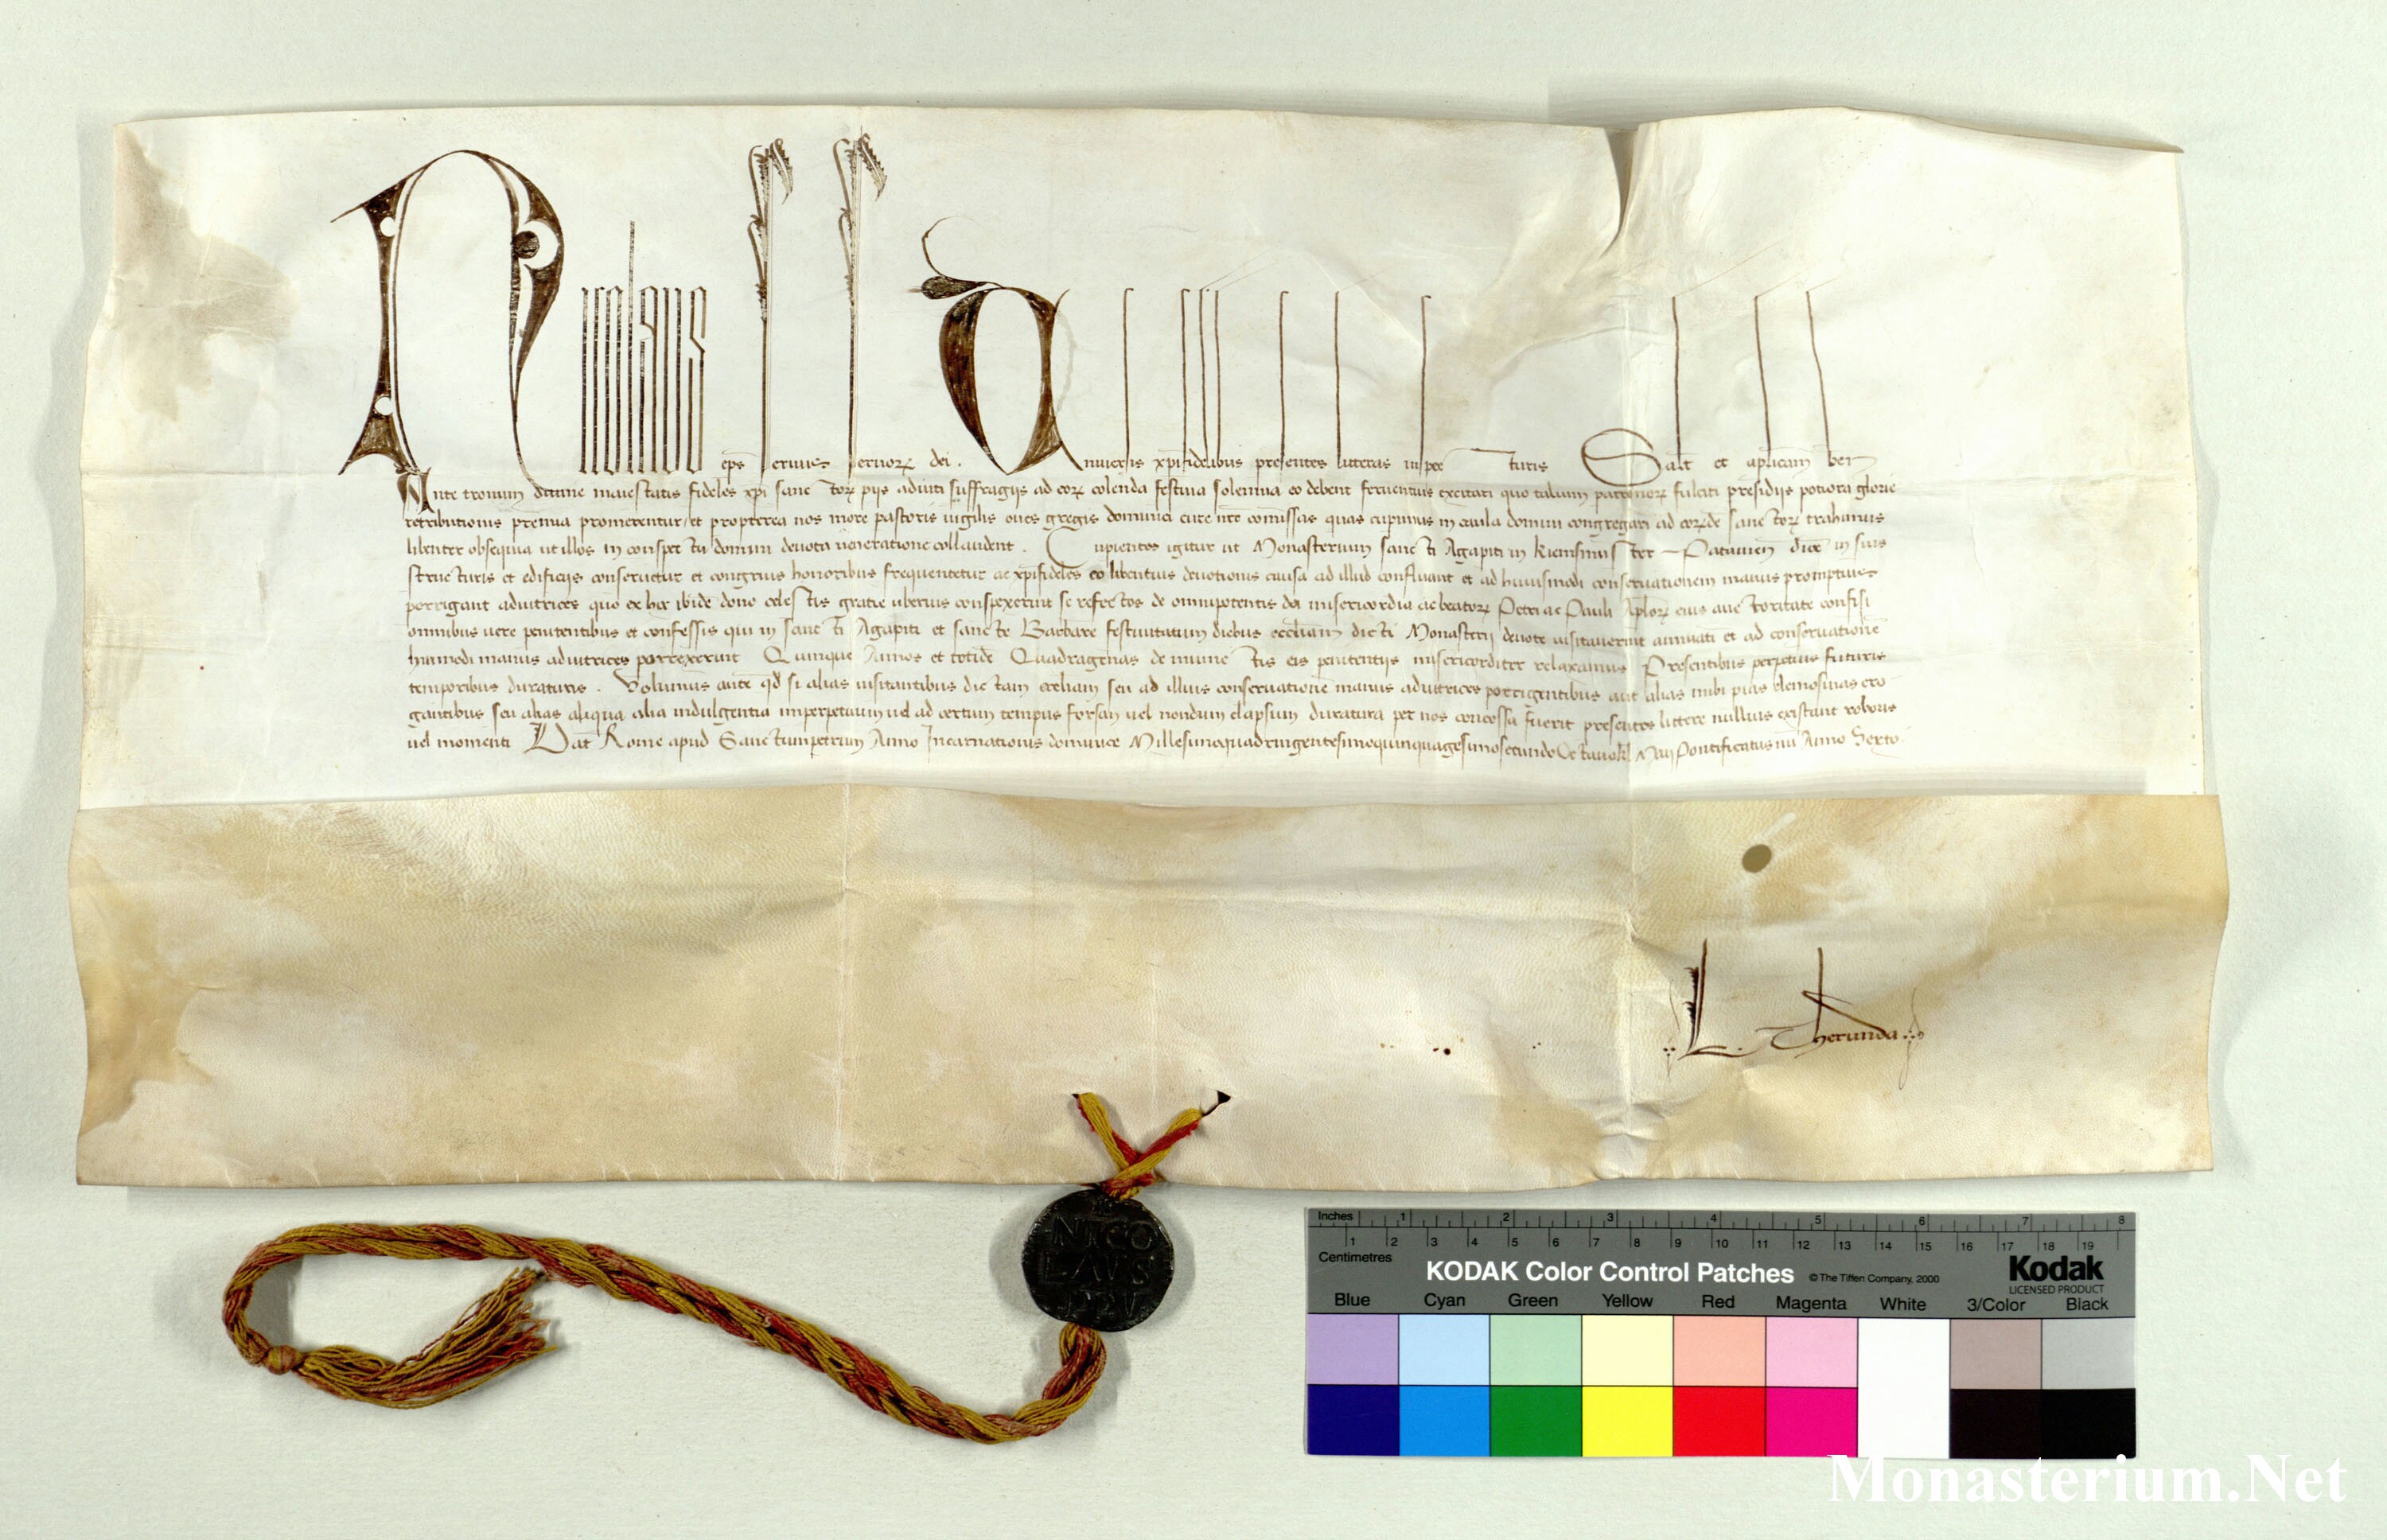 Nicolaus ep̄s seruus seruoꝝ dei. Uniuersis xp̄ifidelibus presentes litteras inspecturis Salt̄ et apl̄icam ben̄
Ante tronum diuine maiestatis fideles xp̄i sanctoꝝ piis adiuti suffragijs ad eoꝝ colenda festiua solennia eo debent feruentius excitari quo talium patronoꝝ fulciti presidijs potiora glorie
retributionis premia promerentur et propterea nos more pastoris uigilis oues gregis dominici cure nr̄e comissas quas cupimus in caula domini congregari ad eoꝝde sanctoꝝ trahamus
libenter obsequia ut illos in conspectu domini deuota ueneratione collaudent. Cupientes igitur ut Monasterium sancti Agapiti in Kiemsmunster Patauien̄ dioc̄ in suis
structuris et edificijs conseruetur et congruis honoribus frequentetur ac xp̄ifideles eo libentius deuotionis causa ad illud confluant et ad huiusmodi conseruationem manus promptius
porrigant adiutrices quo ex hoc ibidē dono celestis gratie uberius conspexerint se refectos de omnipotentis dei misericordia ac beatoꝝ Petri ac Pauli Apl̄oꝝ eius auctoritate confisi
omnibus uere penitentibus et confessis qui in sancti Agapiti et sancte Barbare festiuitatum diebus eccl̄iam dicti Monasterij deuote uisitauerint annuati et ad conseruationē
hmmodi manus adiutrices porrexerint Quinque Annos et totidē Quadragenas de iniunctis eis penitentijs misericorditer relaxamus Presentibus perpetuis futuris
temporibus duraturis. Volumus autē qd̄ si alias uisitantibus dictam eccliam seu ad illius conseruationē manus adiutrices porrigentibus aut alias inibi pias elemosinas ero-
gantibus seu alias aliqua alia indulgentia imperpetuum uel ad certum tempus forsan uel nondum elapsum duratura per nos concessa fuerit presentes littere nullius existant roboris
uel momenti Dat̄ Rome apud Sanctumpetrum Anno Incarnationis dominice Millesimoquadringentesimoquinquagesimosecundo Octauokl̄ Maij Pontificatus nr̄i Anno Sexto.
L. Therunda
NICO
LAVS
PP V
Inches 1 2 3 4 5 6 7 8
Centimetres 1 2 3 4 5 6 7 8 9 10 11 12 13 14 15 16 17 18 19
KODAK Color Control Patches © The Tiffen Company, 2000 Kodak
LICENSED PRODUCT
Blue Cyan Green Yellow Red Magenta White 3/Color Black
Monasterium.Net